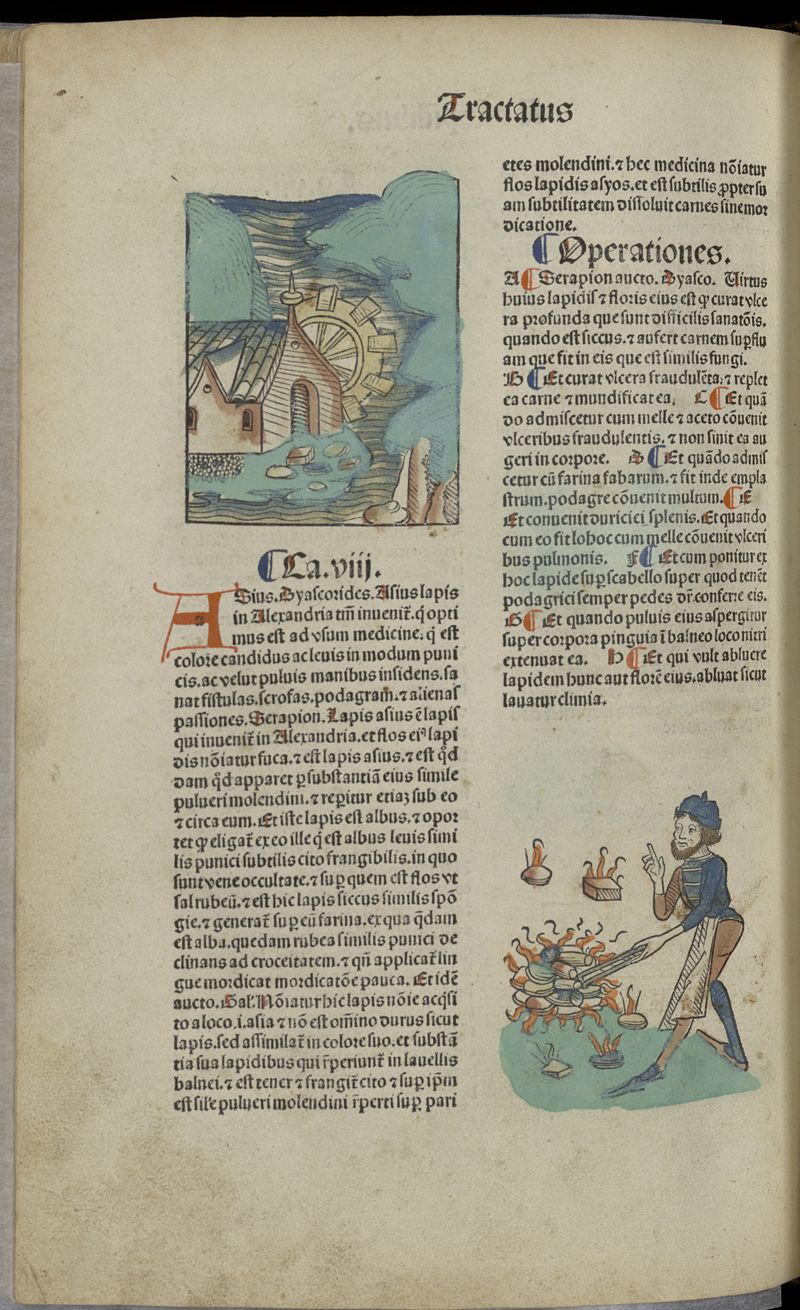 Tractatus
¶Ca.viij.
ASius. Dyascorides. Asius lapis
in Alexandria tm̄ inuenit̃. q̇ opti
mus est ad vsum medicine. q̇ est
colore candidus ac leuis in modum puni
cis. ac velut puluis manibus insidens. sa
nat fistulas. scrofas. podagram̄. ⁊ alienas
passiones. Serapion. Lapis asius ē lapis
qui inuenit̃ in Alexandria. et flos eiꝰ lapi
dis nōiatur fuca. ⁊ est lapis asius. ⁊ est q̇d
dam q̇d apparet ꝑ substantiā eius simile
pulueri molendini. ⁊ reꝑitur etiaꝫ sub eo
⁊ circa eum. Et iste lapis est albus. ⁊ opor
tet ꝙ eligat̃ ex eo ille q̇ est albus leuis simi
lis punici subtilis cito frangibilis. in quo
sunt vene occultate. ⁊ suꝑ quem est flos vt
sal rubeū. ⁊ est hic lapis siccus similis spō
gie. ⁊ generat̃ suꝑ eū farina. ex qua q̄dam
est alba. quedam rubea similis punici de
clinans ad croceitatem. ⁊ qn̄ applicat̃ lin
gue mordicat mordicatōe pauca. Et idē
aucto. Gal. Nōiatur hic lapis nōie acq̇si
to a loco. i. asia ⁊ nō est om̄ino durus sicut
lapis. sed assimilat̃ in colore suo. et substā
tia sua lapidibus qui r̄periunt̃ in lauellis
balnei. ⁊ est tener ⁊ frangit̃ cito ⁊ suꝑ ip̄m
est sil̄e pulueri molendini r̄perti suꝑ pari
etes molendini. ⁊ hec medicina nōiatur
flos lapidis asyos. et est subtilis ꝓpter su
am subtilitatem dissoluit carnes sine mor
dicatione.
¶Operationes.
A ¶Serapion aucto. Dyasco. Uirtus
huius lapidis ⁊ floris eius est ꝙ curat vlce
ra profunda que sunt difficilis sanatōis.
quando est siccus. ⁊ aufert carnem suꝑflu
am que fit in eis que est similis fungi.
B ¶Et curat vlcera fraudulēta. ⁊ replet
ea carne ⁊ mundificat ea. C ¶Et quā
do admiscetur cum melle ⁊ aceto cōuenit
vlceribus fraudulentis. ⁊ non sinit ea au
geri in corpore. D ¶Et quādo admis
cetur cū farina fabarum. ⁊ fit inde empla
strum. podagre cōuenit multum. ¶E
Et conuenit duriciei splenis. Et quando
cum eo fit lohoc cum melle cōuenit vlceri
bus pulmonis. F ¶Et cum ponitur ex
hoc lapide suꝑ scabello super quod tenēt
podagrici semper pedes dr̄. conferre eis.
G ¶Et quando puluis eius aspergitur
super corpora pinguia ī balneo loco nitri
extenuat ea. H ¶Et qui vult abluere
lapidem hunc aut florē eius. abluat sicut
lauatur climia.